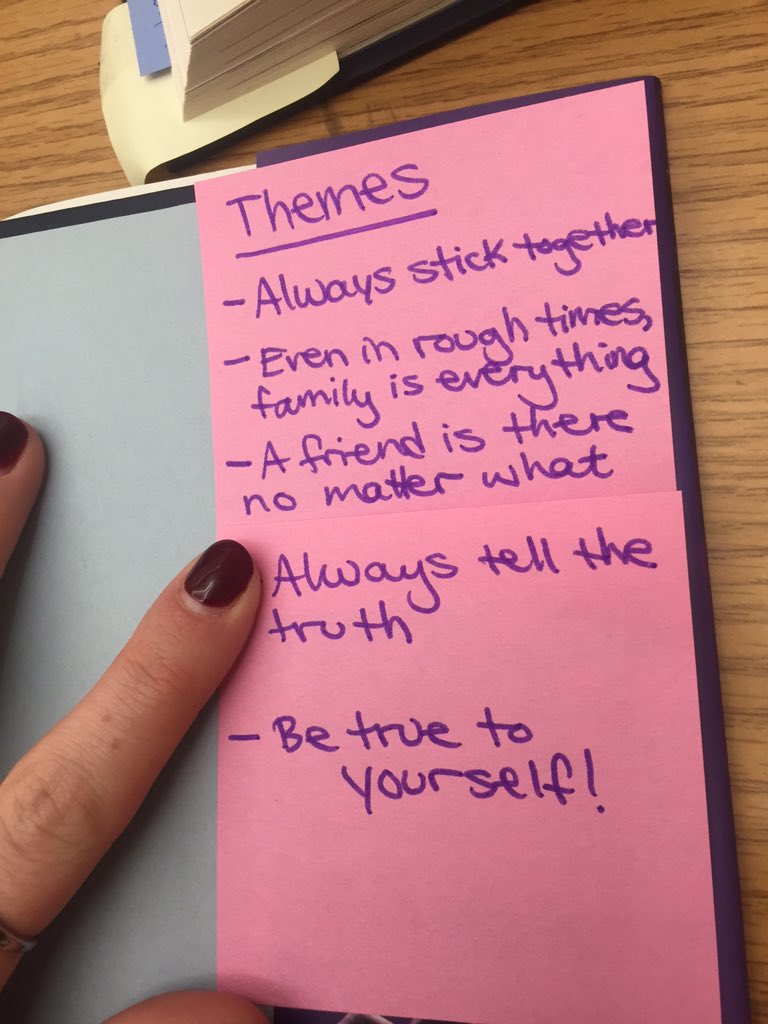 Themes
- Always stick together
- Even in rough times,
family is everything
- A friend is there
no matter what
Always tell the
truth
- Be true to
yourself!